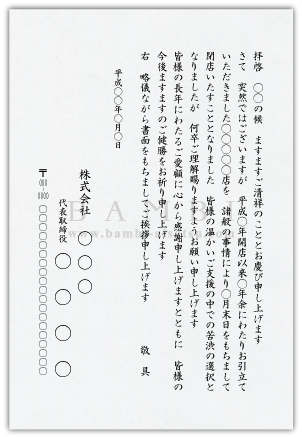 拝啓　〇〇の候　ますますご清祥のこととお慶び申し上げます
さて　突然ではございますが　平成〇年開店以来〇年余にわたりお引立て
いただきました〇〇〇〇店を　諸般の事情により〇月末日をもちまして
閉店いたすこととなりました　皆様の温かいご支援の中での苦渋の選択と
なりましたが　何卒ご理解賜りますようお願い申し上げます
皆様の長年にわたるご愛顧に心から感謝申し上げますとともに　皆様の
今後ますますのご健勝をお祈り申し上げます
右　略儀ながら書面をもちましてご挨拶申し上げます　　敬具
平成〇〇年〇月〇日
株式会社　〇〇〇
代表取締役　〇〇〇〇
〒000-0000　〇〇〇〇〇〇〇〇〇〇〇〇〇〇〇